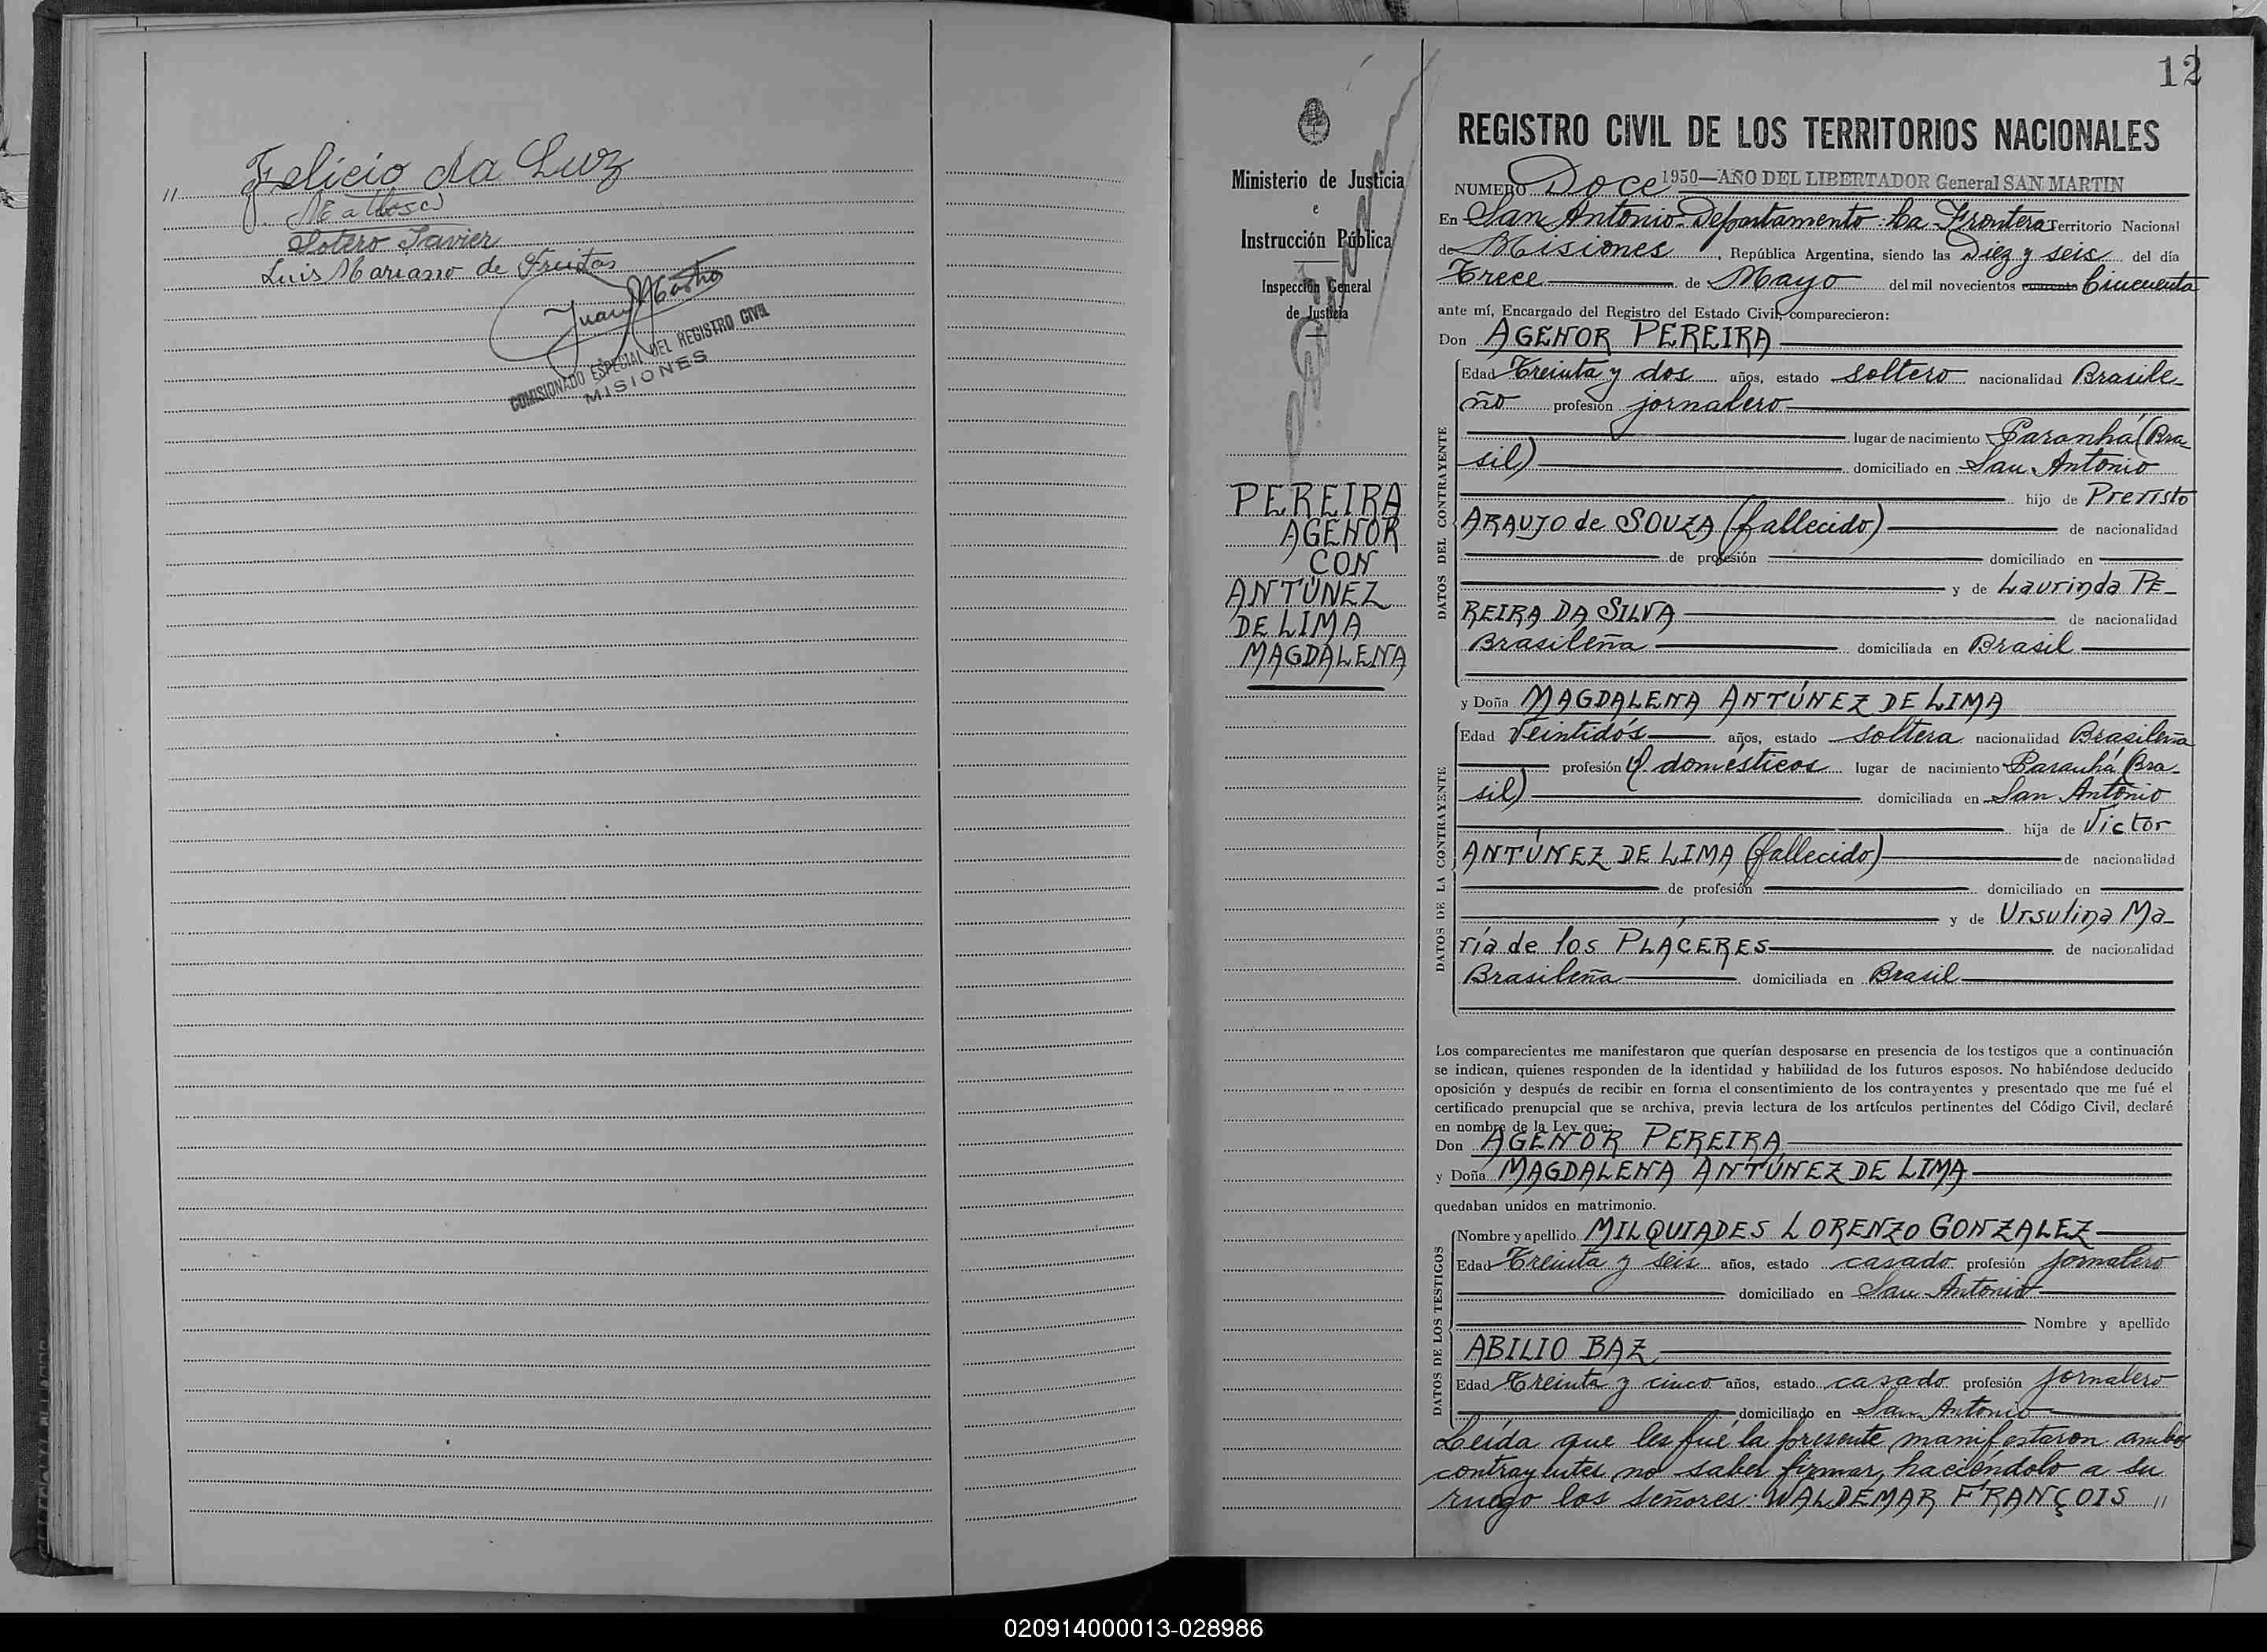 // Felicio da Luz
Sotero Javier
Luis Mariano de Freitas
COMISIONADO ESPECIAL DEL REGISTRO CIVIL
MISIONES
12
Ministerio de Justicia
e
Instrucción Pública
Inspección General
de Justicia
PEREIRA
AGENOR
CON
ANTÚNEZ
DE LIMA
MAGDALENA
REGISTRO CIVIL DE LOS TERRITORIOS NACIONALES
NUMERO Doce 1950—AÑO DEL LIBERTADOR General SAN MARTIN
En San Antonio-Departamento: La Frontera Territorio Nacional
de Misiones, República Argentina, siendo las Diez y seis del día
Trece de Mayo del mil novecientos cuarenta Cincuenta
ante mí, Encargado del Registro del Estado Civil, comparecieron:
Don AGENOR PEREIRA
DATOS DEL CONTRAYENTE
Edad Treinta y dos años, estado soltero nacionalidad Brasile-
ño profesión jornalero
lugar de nacimiento Paranhá (Bra-
sil) domiciliado en San Antonio
hijo de Previsto
ARAUJO de SOUZA (fallecido) de nacionalidad
de profesión domiciliado en
y de Laurinda PE-
REIRA DA SILVA de nacionalidad
Brasileña domiciliada en Brasil
y Doña MAGDALENA ANTÚNEZ DE LIMA
DATOS DE LA CONTRAYENTE
Edad Veintidós años, estado soltera nacionalidad Brasileña
profesión Q. domésticos lugar de nacimiento Paranhá (Bra-
sil) domiciliada en San Antonio
hija de Victor
ANTÚNEZ DE LIMA (fallecido) de nacionalidad
de profesión domiciliado en
y de Ursulina Ma-
ría de los PLACERES de nacionalidad
Brasileña domiciliada en Brasil
Los comparecientes me manifestaron que querían desposarse en presencia de los testigos que a continuación
se indican, quienes responden de la identidad y habilidad de los futuros esposos. No habiéndose deducido
oposición y después de recibir en forma el consentimiento de los contrayentes y presentado que me fué el
certificado prenupcial que se archiva, previa lectura de los artículos pertinentes del Código Civil, declaré
en nombre de la Ley que:
Don AGENOR PEREIRA
y Doña MAGDALENA ANTÚNEZ DE LIMA
quedaban unidos en matrimonio.
DATOS DE LOS TESTIGOS
Nombre y apellido MILQUIADES LORENZO GONZALEZ
Edad Treinta y seis años, estado casado profesión jornalero
domiciliado en San Antonio
Nombre y apellido
ABILIO BAZ
Edad Treinta y cinco años, estado casado profesión jornalero
domiciliado en San Antonio
Leída que les fué la presente manifestaron ambos
contrayentes no saber firmar, haciéndolo a su
ruego los señores: WALDEMAR FRANÇOIS //
020914000013-028986